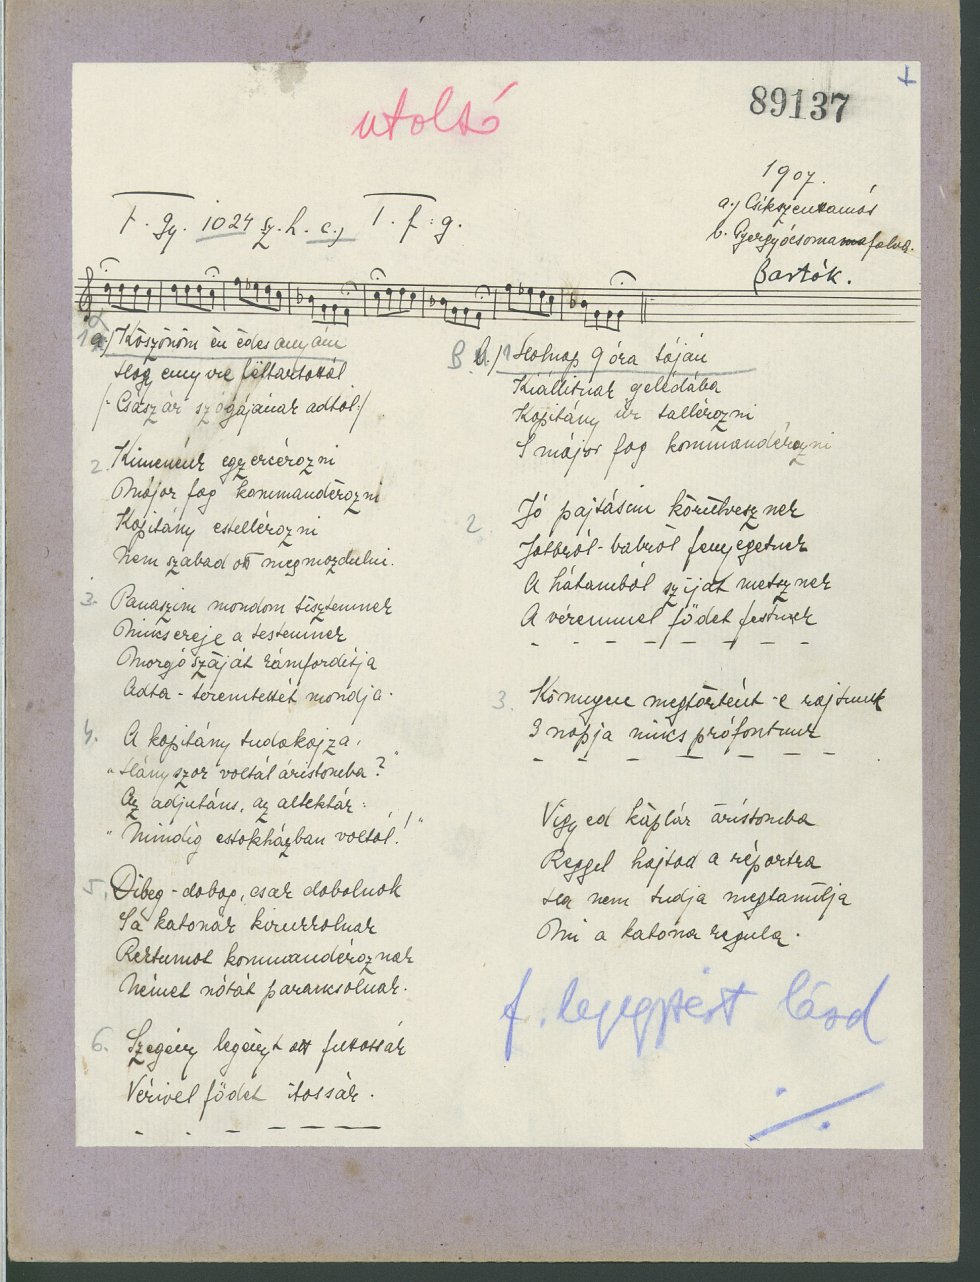 utolsó
89137
1907.
a.) Csikszenttamás
b. Gyergyócsomafalva.
Bartók.
T. gy. 1024 sz. h. c.) T. f. g.
a.) Köszönöm én édes anyám
Hogy ennyire föltartottál
/: Császár szógájának adtál :/
2. Kimenénk egzecérozni
Május fog kommandérozni
Kapitány estellérozni
Nem szabad ott megmozdulni.
3. Panaszim mondom tisztemnek
Nincs ereje a testemnek
Morgó száját rámfordítja
Adta-teremtettét mondja.
4. A kapitány tudakojza,
"Hányszor voltál áristomba?"
Az adjutáns, az altektár:
"Mindig estokházban voltál!"
5. Dibeg-dobog, csak dobolnak
S a katonák kirukkolnak
Kommandéroznak
Német nótát parancsolnak.
6. Szegény legényt ott futossák
Vérivel födet itassák.
B. b.) 1 Holnap 9 óra táján
Kiállitnak gelédába
Kapitány úr tallérozni
S május fog kommandérozni
2. Jó pajtásim körülvesznek
Jobbról-balról fenyegetnek
A hátamból szijat metsznek
A véremmel födet festnek
3. Könnyen megtörtént-e rajtunk
3 napja nincs prófontunk
Vigyed káplár áristomba
Reggel hajtod a réportra
Ha nem tudja megtanulja
Mi a katona regula.
f. lejegyzést lásd
./.